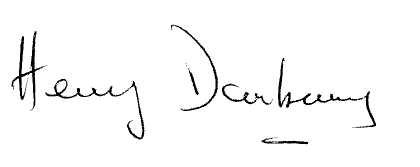 Henry Darbany